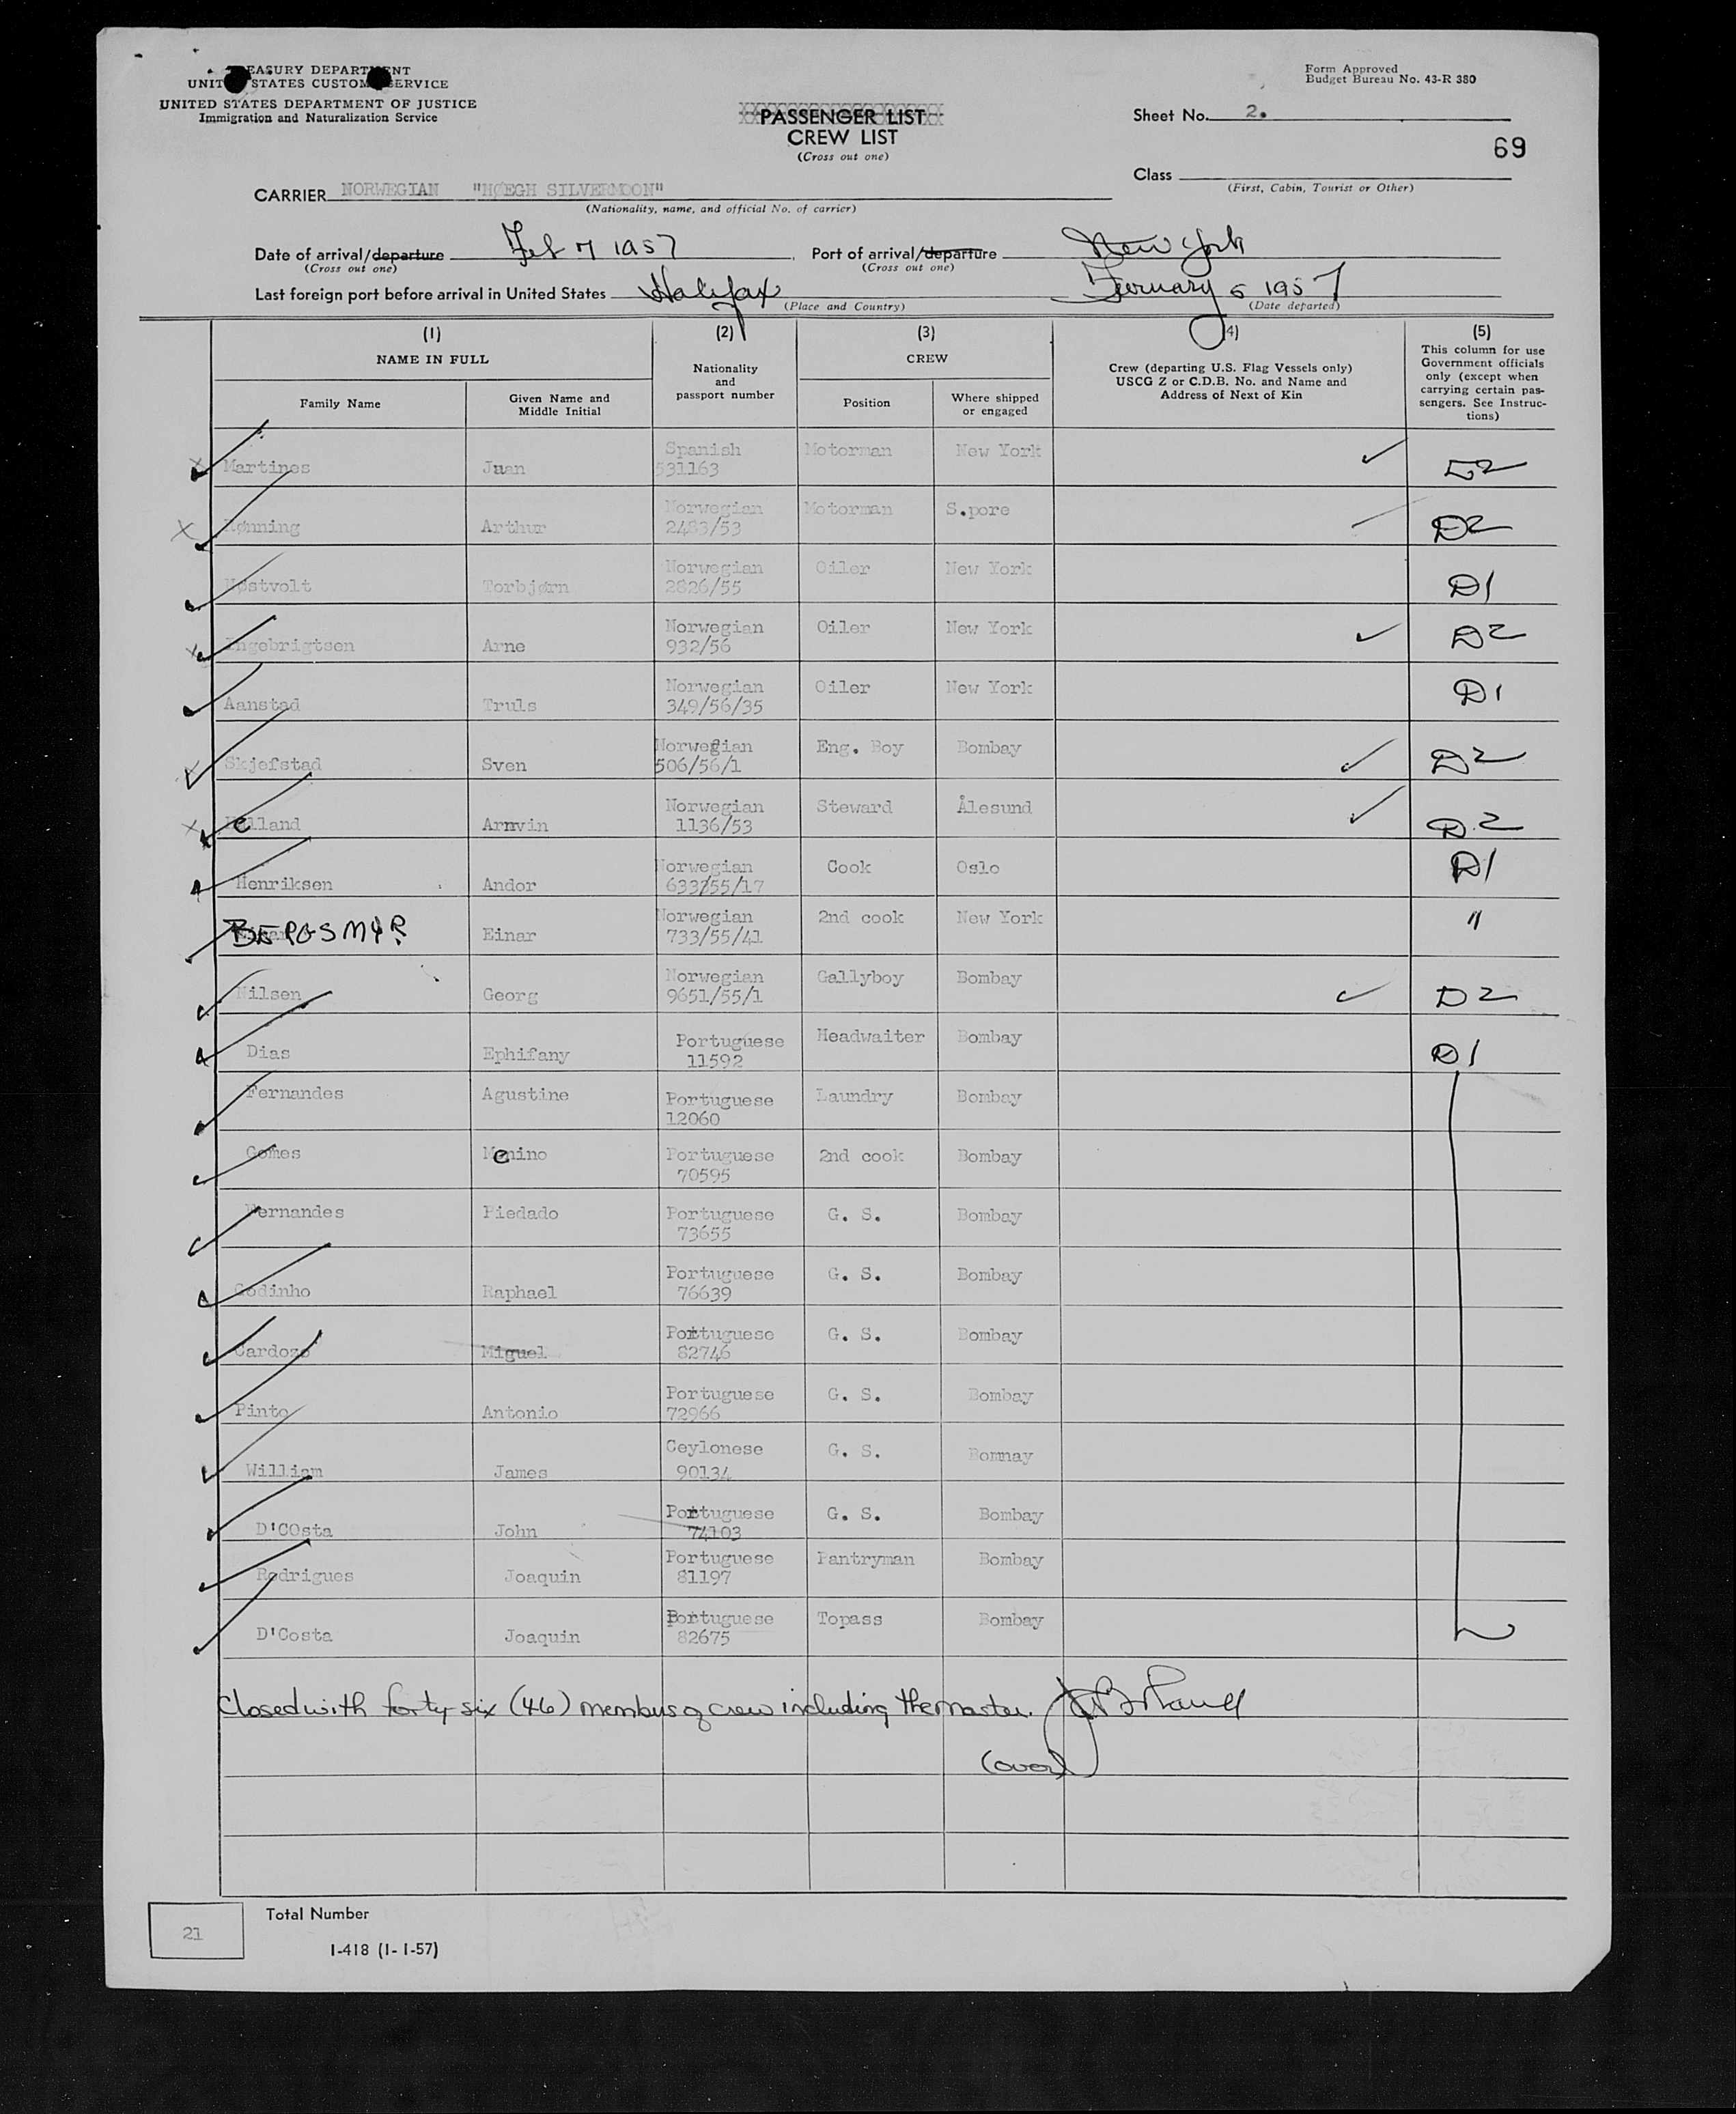 TREASURY DEPARTMENT
UNITED STATES CUSTOMS SERVICE
UNITED STATES DEPARTMENT OF JUSTICE
Immigration and Naturalization Service
Form Approved
Budget Bureau No. 43-R 380
PASSENGER LIST
CREW LIST
(Cross out one)
Sheet No. 2.
69
Class
(First, Cabin, Tourist or Other)
CARRIER NORWEGIAN "HØEGH SILVERMOON"
(Nationality, name, and official No. of carrier)
Date of arrival/departure Feb 7 1957 Port of arrival/departure New York
(Cross out one) (Cross out one)
Last foreign port before arrival in United States Halifax February 5 1957
(Place and Country) (Date departed)
(1) (2) (3) (4) (5)
NAME IN FULL Nationality and passport number CREW Crew (departing U.S. Flag Vessels only) USCG Z or C.D.B. No. and Name and Address of Next of Kin This column for use Government officials only (except when carrying certain passengers. See Instructions)
Family Name Given Name and Middle Initial Position Where shipped or engaged
Martines Juan Spanish 531163 Motorman New York D2
Rønning Arthur Norwegian 2483/53 Motorman S.pore D2
Høstvolt Torbjørn Norwegian 2826/55 Oiler New York D1
Ingebrigtsen Arne Norwegian 932/56 Oiler New York D2
Aanstad Truls Norwegian 349/56/35 Oiler New York D1
Skjefstad Sven Norwegian 506/56/1 Eng. Boy Bombay D2
Helland Arnvin Norwegian 1136/53 Steward Ålesund D2
Henriksen Andor Norwegian 633/55/17 Cook Oslo D1
BERGSMYR Einar Norwegian 733/55/41 2nd cook New York "
Nilsen Georg Norwegian 9651/55/1 Gallyboy Bombay D2
Dias Ephifany Portuguese 11592 Headwaiter Bombay D1
Fernandes Agustine Portuguese 12060 Laundry Bombay
Gomes Menino Portuguese 70595 2nd cook Bombay
Fernandes Piedado Portuguese 73655 G. S. Bombay
Godinho Raphael Portuguese 76639 G. S. Bombay
Cardozo Miguel Portuguese 82746 G. S. Bombay
Pinto Antonio Portuguese 72966 G. S. Bombay
William James Ceylonese 90134 G. S. Bommay
D'COsta John Portuguese 74103 G. S. Bombay
Rodrigues Joaquin Portuguese 81197 Pantryman Bombay
D'Costa Joaquin Portuguese 82675 Topass Bombay
Closed with forty-six (46) members of crew including the master.
(over)
21 Total Number
I-418 (1-1-57)